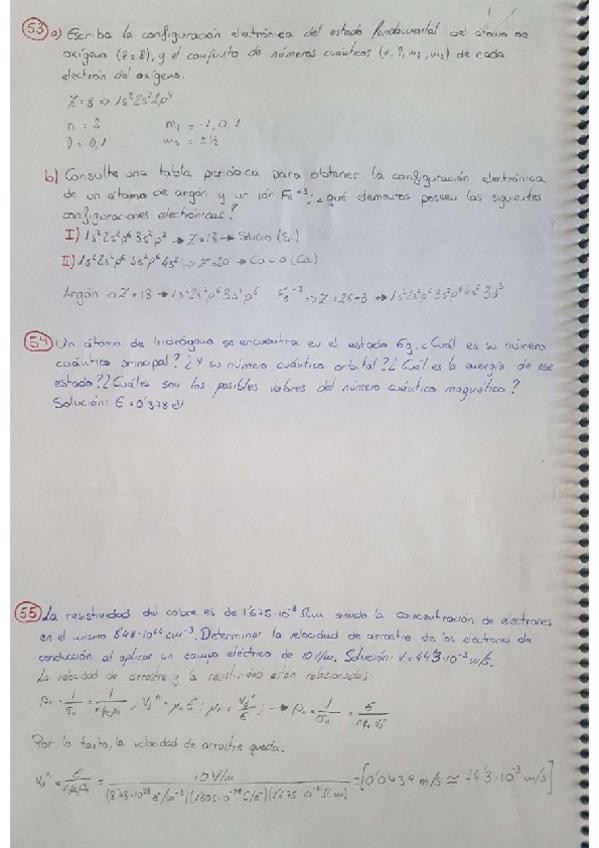 53 a) Escriba la configuración electrónica del estado fundamental del átomo de
oxígeno (Z=8), y el conjunto de números cuánticos (n, l, ml, ms) de cada
electrón del oxígeno.
Z=8 => 1s² 2s² 2p⁴
n = 2 ml = -1, 0, 1
l = 0,1 ms = ±½
b) Consulte una tabla periódica para obtener la configuración electrónica
de un átomo de argón y un ión Fe⁺³; ¿qué elementos poseen las siguientes
configuraciones electrónicas?
I) 1s² 2s² p⁶ 3s² p² → Z=13 → Silicio (Si)
II) 1s² 2s² p⁶ 3s² p⁶ 4s² → Z=20 → Calcio (Ca)
Argón => Z=18 → 1s² 2s² p⁶ 3s² p⁶ Fe⁺³ => Z=26-3 → 1s² 2s² p⁶ 3s² p⁶ 4s² 3d³
54 Un átomo de hidrógeno se encuentra en el estado 6g. ¿Cuál es su número
cuántico principal? ¿Y su número cuántico orbital? ¿Cuál es la energía de ese
estado? ¿Cuáles son los posibles valores del número cuántico magnético?
Solución: E = 0'378 eV
55 La resistividad del cobre es de 1'675·10⁻⁸ Ωm siendo la concentración de electrones
en el mismo 8'48·10²² cm⁻³. Determinar la velocidad de arrastre de los electrones de
conducción al aplicar un campo eléctrico de 10 V/m. Solución: V = 44'3·10⁻³ m/s.
La velocidad de arrastre y la resistividad están relacionadas:
Por lo tanto, la velocidad de arrastre queda.
= 10 V/m / (8'48·10²⁸ e⁻/m⁻³)(1'602·10⁻¹⁹ C/e⁻)(1'675·10⁻⁸ Ωm) = [0'0439 m/s ≃ 44'3·10⁻³ m/s]